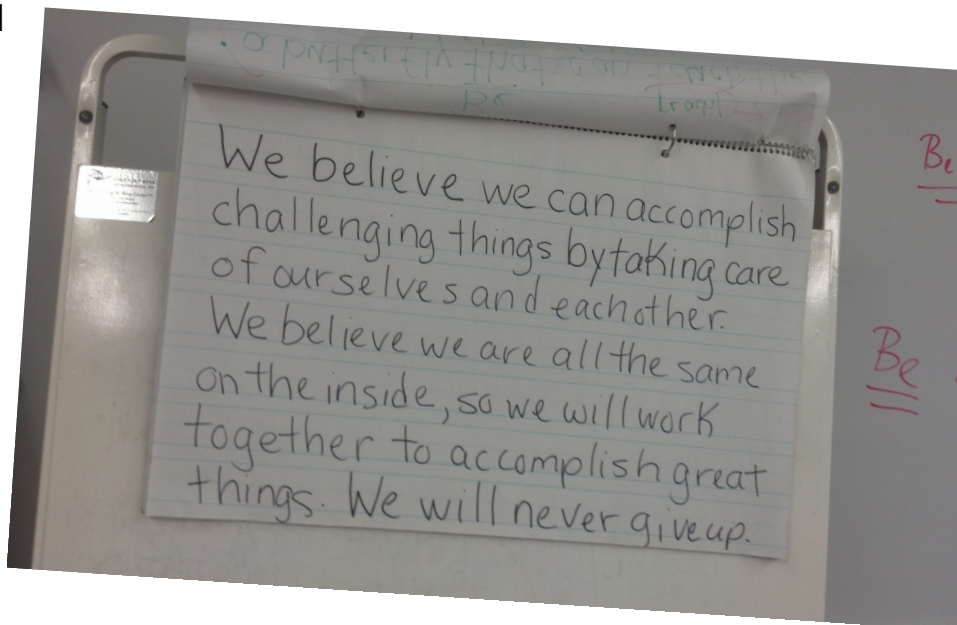 We believe we can accomplish
challenging things by taking care
of ourselves and each other.
We believe we are all the same
on the inside, so we will work
together to accomplish great
things. We will never give up.
Be
Be